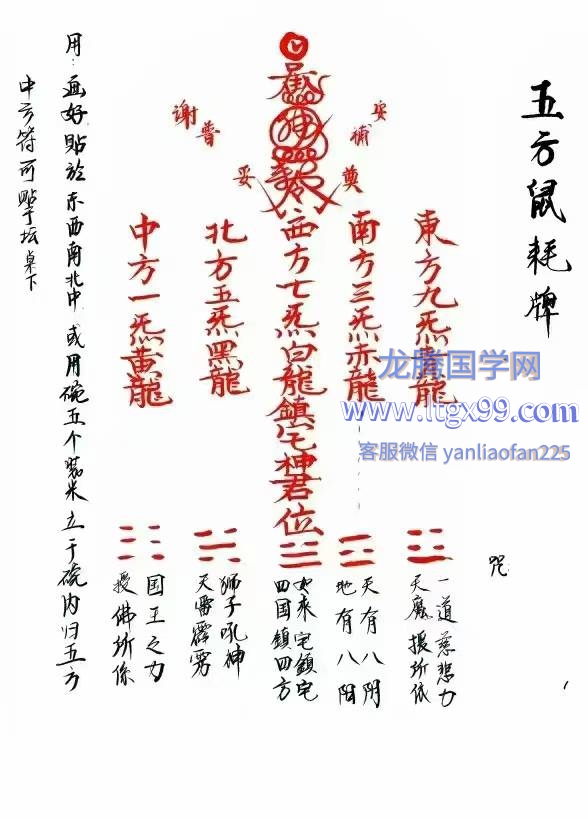 五方鼠耗牌
咒
東方九炁青龍
一道慈悲力
天魔援所依
安
補
奠
南方三炁赤龍
天有八阴
地有八阳
西方七炁白龍鎮宅神君位
如来宅鎮宅
四国鎮四方
妥
普
謝
北方五炁黑龍
狮子吼神
天雷霹雳
中方一炁黄龍
国王之力
援佛所係
用:画好貼於东西南北中或用碗五个装米立于碗内归五方
中方符可貼于坛桌下
龙腾国学网
www.ltgx99.com
客服微信 yanliaofan225